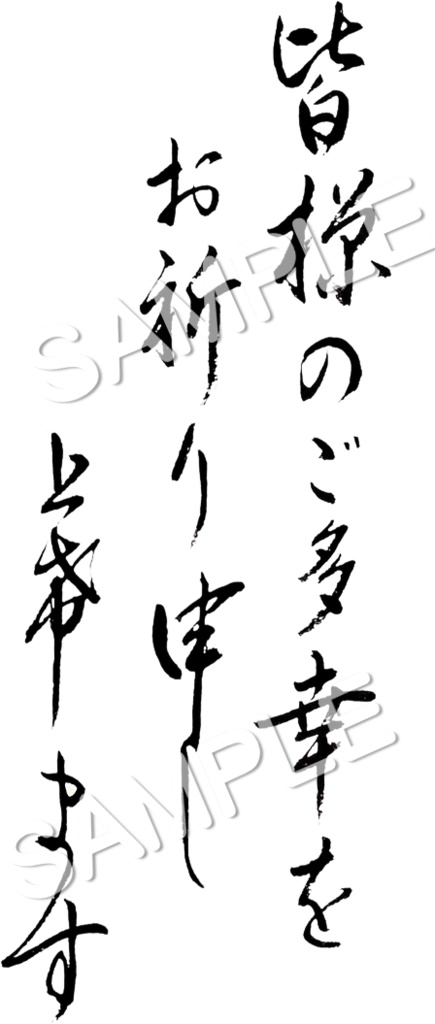 皆様のご多幸を
お祈り申し
上げます
SAMPLE
SAMPLE